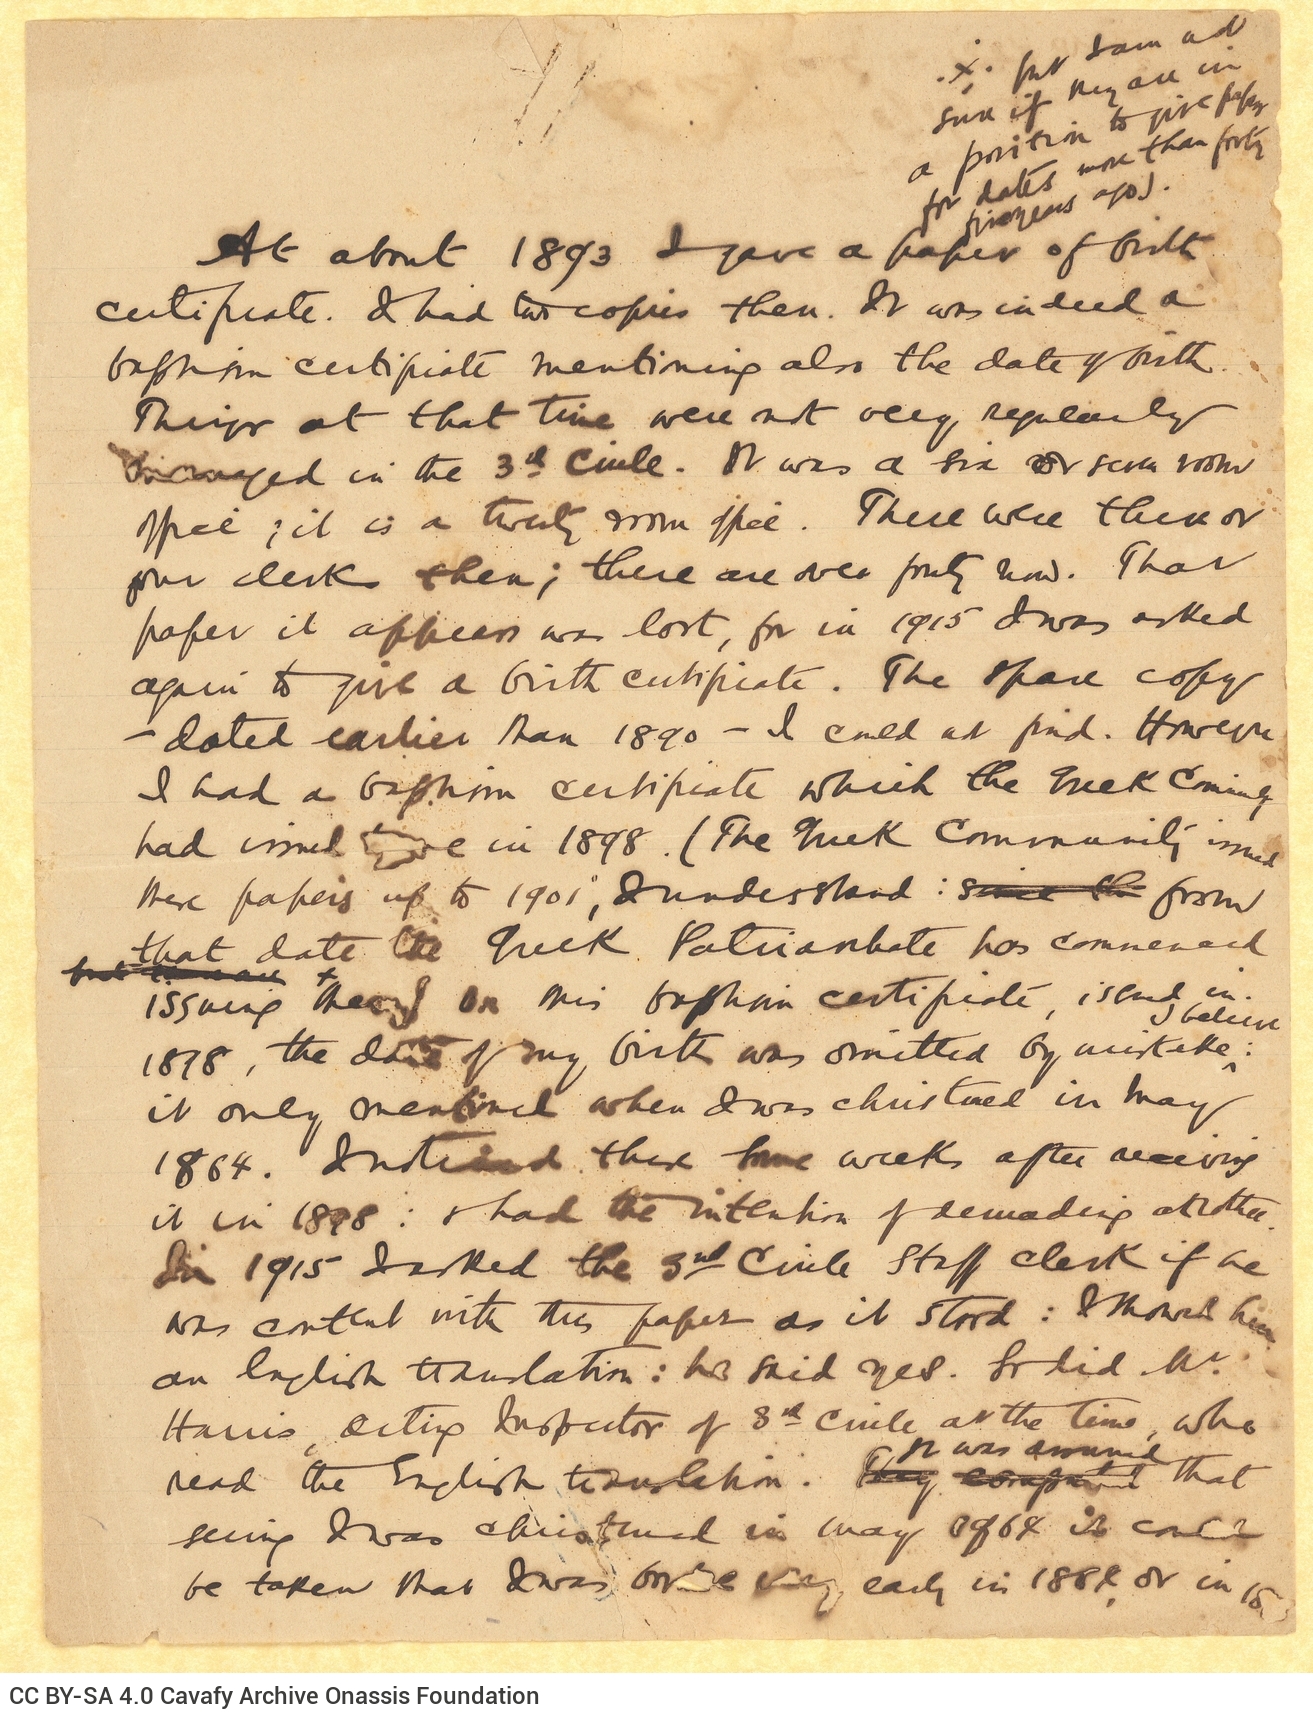 .x. but I am not
sure if they are in
a position to give papers
for dates more than forty
five years ago).
At about 1893 I gave a paper of birth
certificate. I had two copies then. It was indeed a
baptism certificate mentioning also the date of birth.
Things at that time were not very regularly
managed in the 3rd Circle. It was a six or seven room
office; it is a twenty room office. There were three or
four clerks then; there are over forty now. That
paper it appears was lost, for in 1915 I was asked
again to give a birth certificate. The spare copy
- dated earlier than 1890 - I could not find. However
I had a baptism certificate which the Greek Community
had issued me in 1898. (The Greek Community issued
these papers up to 1901, I understand: since the from
that date the Greek Patriarchate has commenced
issuing them x) On this baptism certificate, issued in
I believe
1898, the date of my birth was omitted by mistake:
it only mentioned when I was christened in May
1864. I noticed this some weeks after receiving
it in 1898: & had the intention of demanding another.
In 1915 I asked the 3rd Circle Staff clerk if he
was content with this paper as it stood: I showed him
an English translation: he said yes. So did Mr
Harris, acting Inspector of 3rd Circle at the time, who
It was assumed
read the English translation. They computed that
seeing I was christened in May 1864 it could
be taken that I was born very early in 1864, or in 18
CC BY-SA 4.0 Cavafy Archive Onassis Foundation